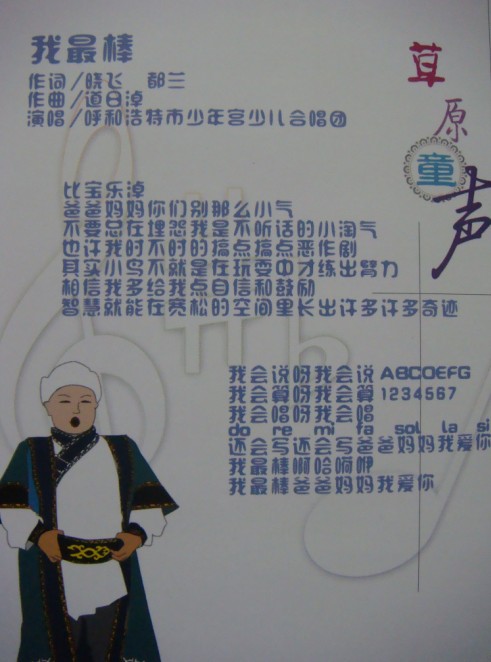 我最棒
作词/晓飞 郁兰
作曲/道日淖
演唱/呼和浩特市少年宫少儿合唱团
草原童声
比宝乐淖
爸爸妈妈你们别那么小气
不要总在埋怨我是不听话的小淘气
也许我时不时的搞点搞点恶作剧
其实小鸟不就是在玩耍中才练出臂力
相信我多给我点自信和鼓励
智慧就能在宽松的空间里长出许多许多奇迹
我会说呀我会说 ABCDEFG
我会算呀我会算 1234567
我会唱呀我会唱
do re mi fa sol la si
还会写还会写爸爸妈妈我爱你
我最棒啊哈啊咿
我最棒爸爸妈妈我爱你